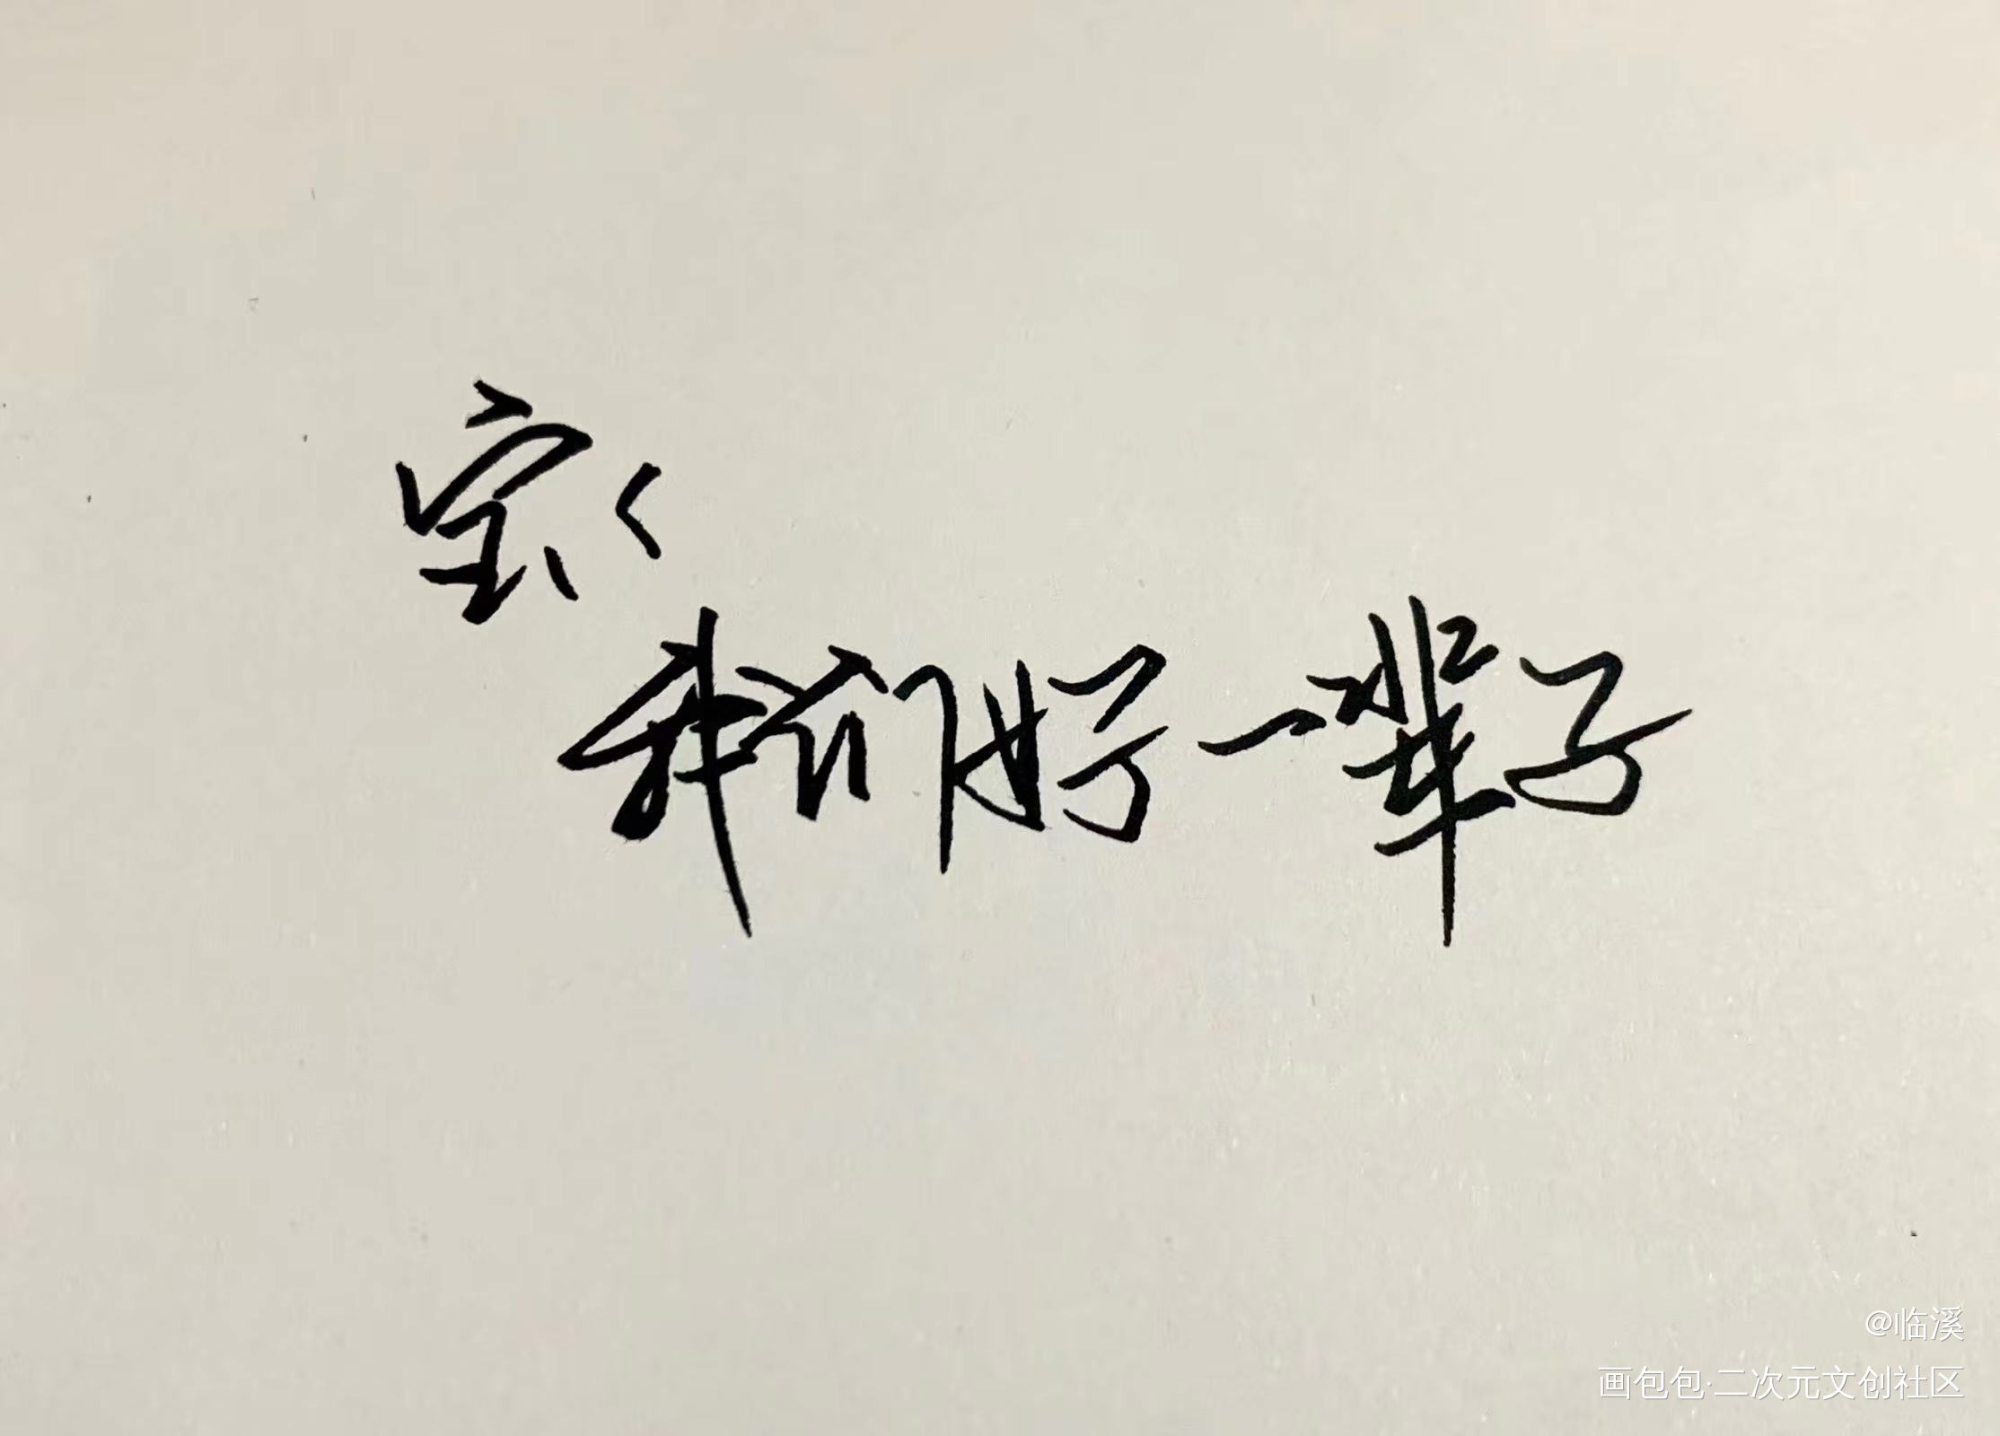 宝〱
我们好一辈子
@临溪
画包包·二次元文创社区